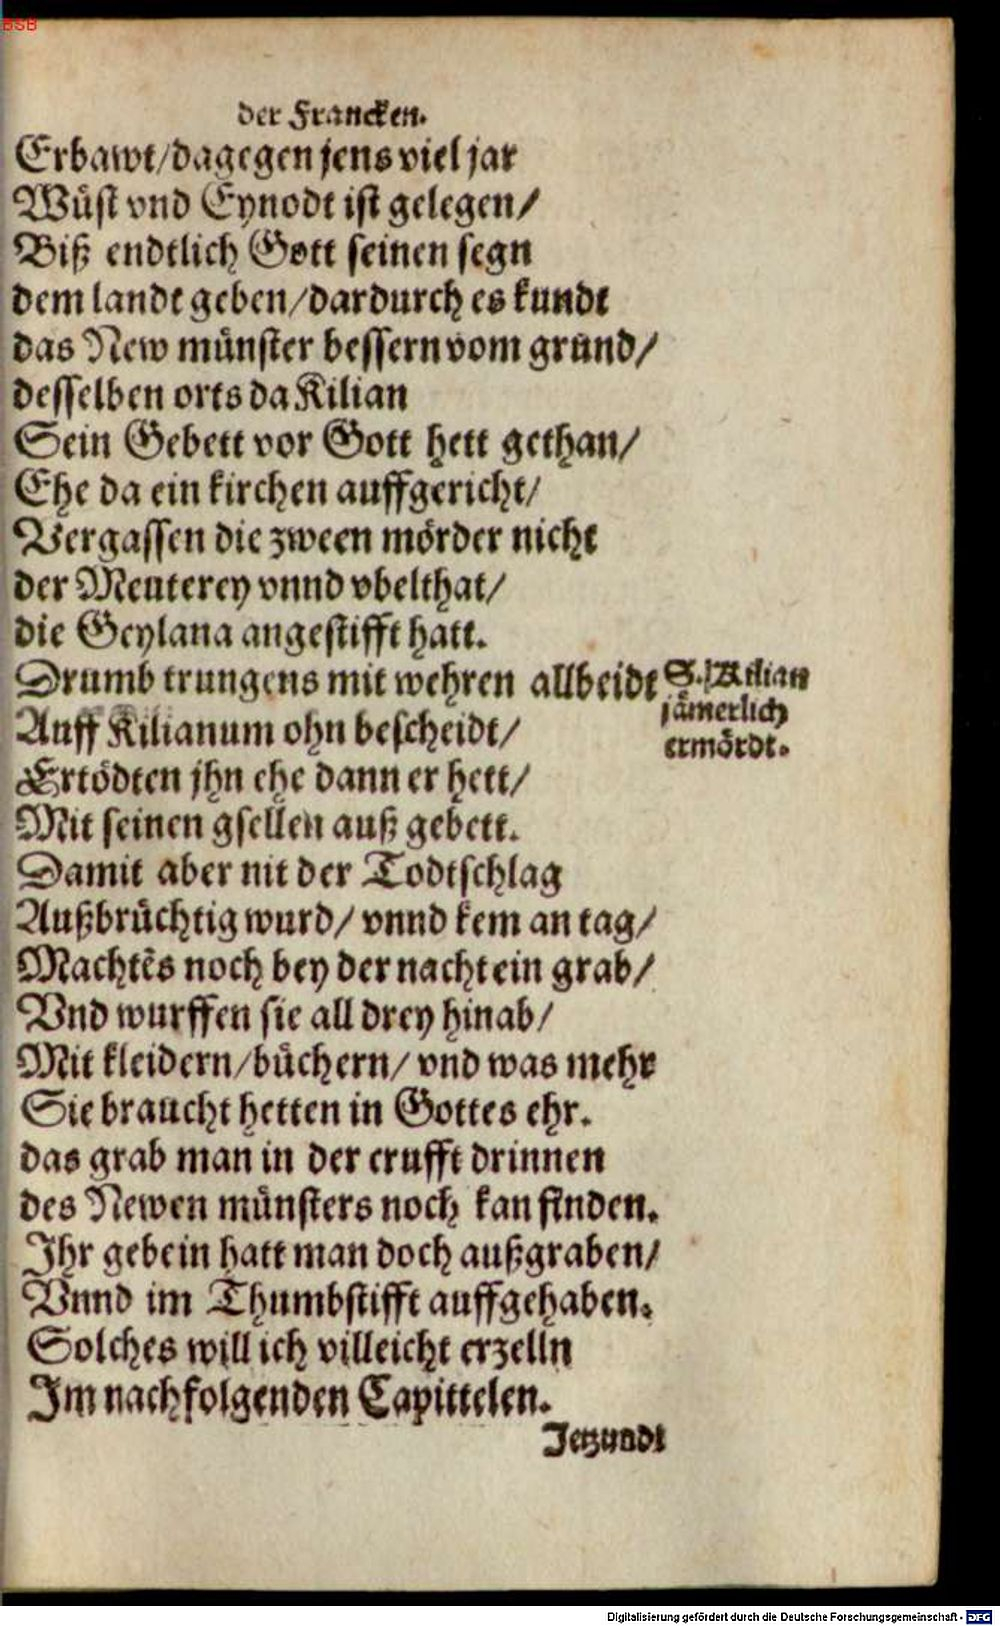 BSB
der Francken.
Erbawt/dagegen jens viel jar
Wüst vnd Eynodt ist gelegen/
Biß endtlich Gott seinen segn
dem landt geben/dardurch es kundt
das New münster bessern vom grund/
desselben orts da Kilian
Sein Gebett vor Gott hett gethan/
Ehe da ein kirchen auffgericht/
Vergassen die zween mörder nicht
der Meuterey vnnd vbelthat/
die Geylana angestifft hatt.
Drumb trungens mit wehren allbeidt
S. Kilian
jämerlich
ermördt.
Auff Kilianum ohn bescheidt/
Ertödten jhn ehe dann er hett/
Mit seinen gsellen auß gebett.
Damit aber nit der Todtschlag
Außbrüchtig wurd/ vnnd kem an tag/
Machtẽs noch bey der nacht ein grab/
Vnd wurffen sie all drey hinab/
Mit kleidern/büchern/ vnd was mehr
Sie braucht hetten in Gottes ehr.
das grab man in der crufft drinnen
des Newen münsters noch kan finden.
Ihr gebein hatt man doch außgraben/
Vnnd im Thumbstifft auffgehaben.
Solches will ich villeicht erzelln
Im nachfolgenden Capittelen.
Jetzundt
Digitalisierung gefördert durch die Deutsche Forschungsgemeinschaft - DFG